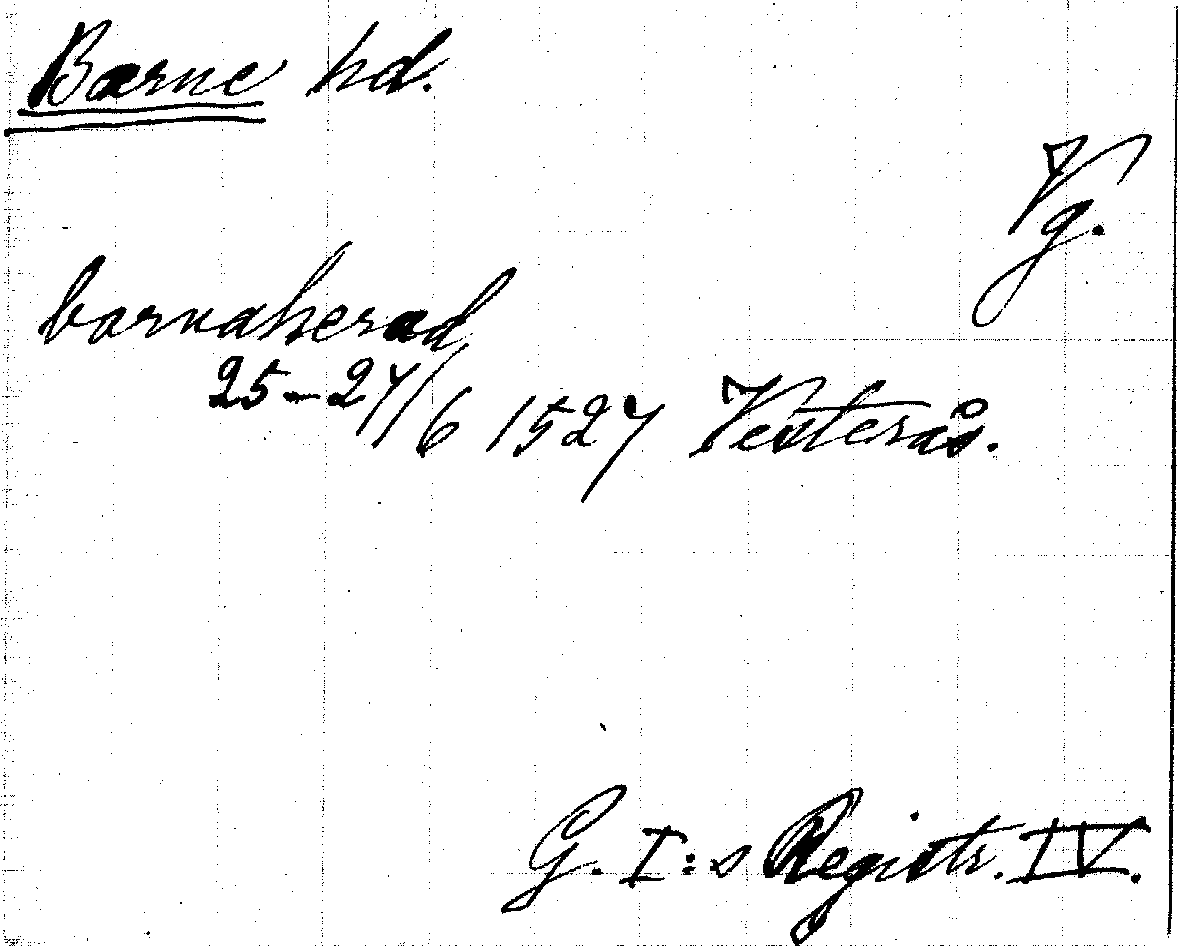 Barne hd.
Vg.
barnaherad
25-27/6 1527 Vesterås.
G. I:s Registr. IV.